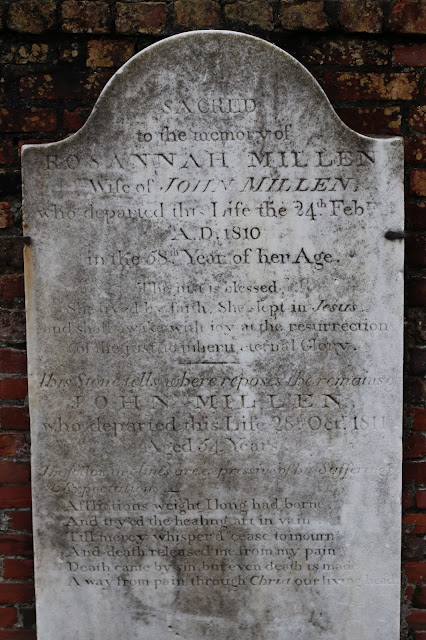 SACRED
to the memory of
ROSANNAH MILLEN
Wife of JOHN MILLEN,
who departed this Life the 24th Feby
A.D. 1810
in the 58th Year of her Age.
The is blessed
She lived by faith, She slept in Jesus
and shall awake with joy at the resurrection
of the just to inherit eternal Glory.
This Stone tells where reposes the remains of
JOHN MILLEN
who departed this Life 28th Oct. 1811
Aged 54 Years
The lines are by Suffering
Afflictions weight I long had borne
And tryed the healing art in vain
Till mercy whisper'd cease to mourn
And death released me from my pain
Death came by sin, but even death is made
A way from pain through Christ our living head